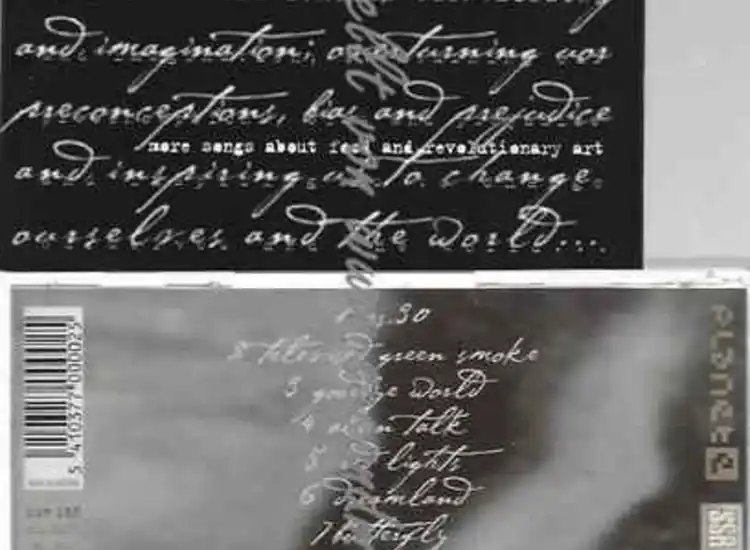 and imagination; overturning our
preconceptions, bias and prejudice
more songs about food and revolutionary art
and inspiring us to change
ourselves and the world....
1 es.30
2 televised green smoke
3 goodbye world
4 alien talk
5 red lights
6 dreamland
7 butterfly
5 410377 000023
planet e
SSR